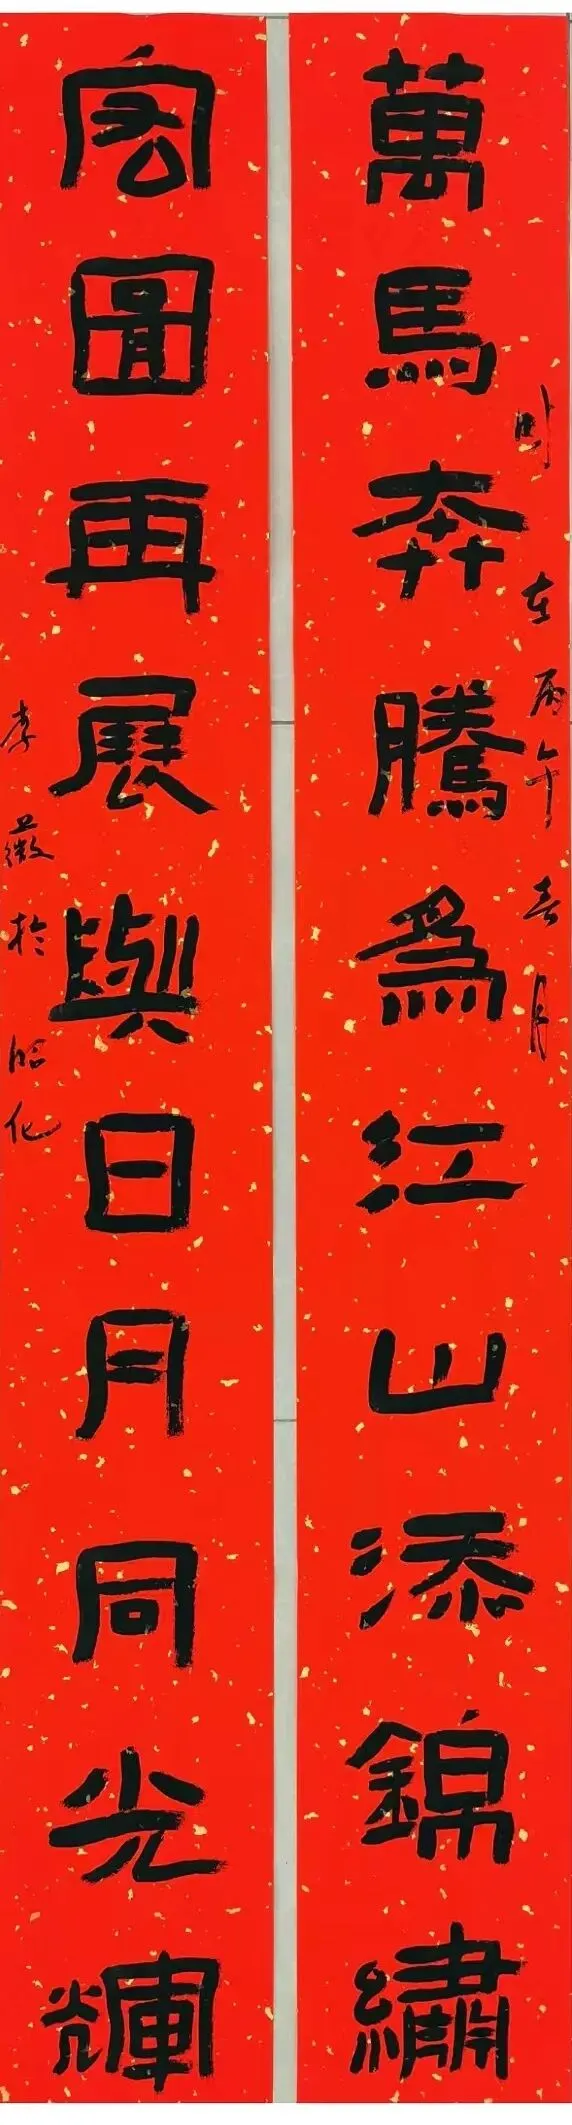 萬馬奔騰為江山添錦繡
时在丙午春月
宏圖再展與日月同光輝
李薇於昭化